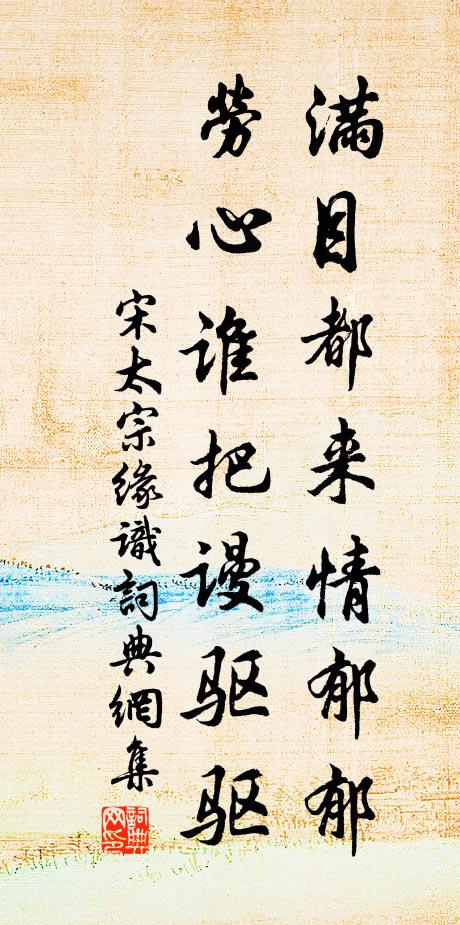 滿目都来情郁郁
勞心谁把谩驱驱
宋太宗缘識詞典網集
詞典网印